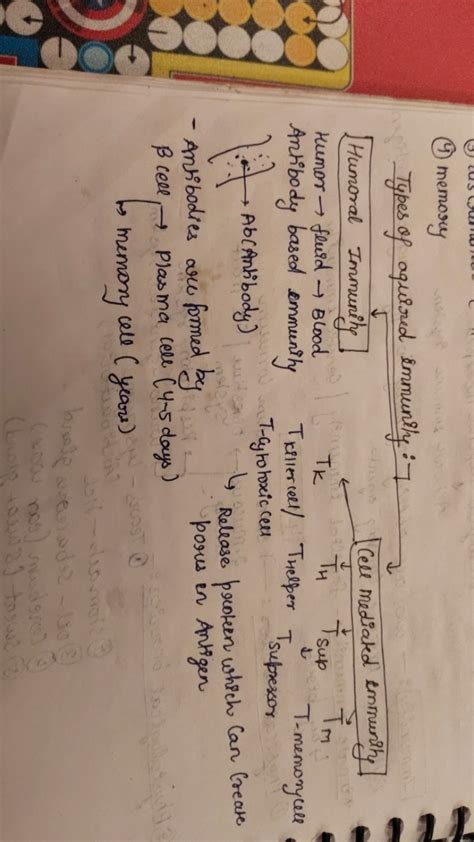 ④ memory
Types of aquired immunity :-
Humoral Immunity
Cell mediated immunity
Humor → fluid → Blood
Antibody based immunity
→ Ab(Antibody)
- Antibodies are formed by
B cell → Plasma cell (4-5 days)
↳ memory cell (years)
TK TH Tsup TM
T killer cell/ T helper T supressor T-memory cell
T-cytotoxic cell
↳ Release protein which can create
pores in Antigen